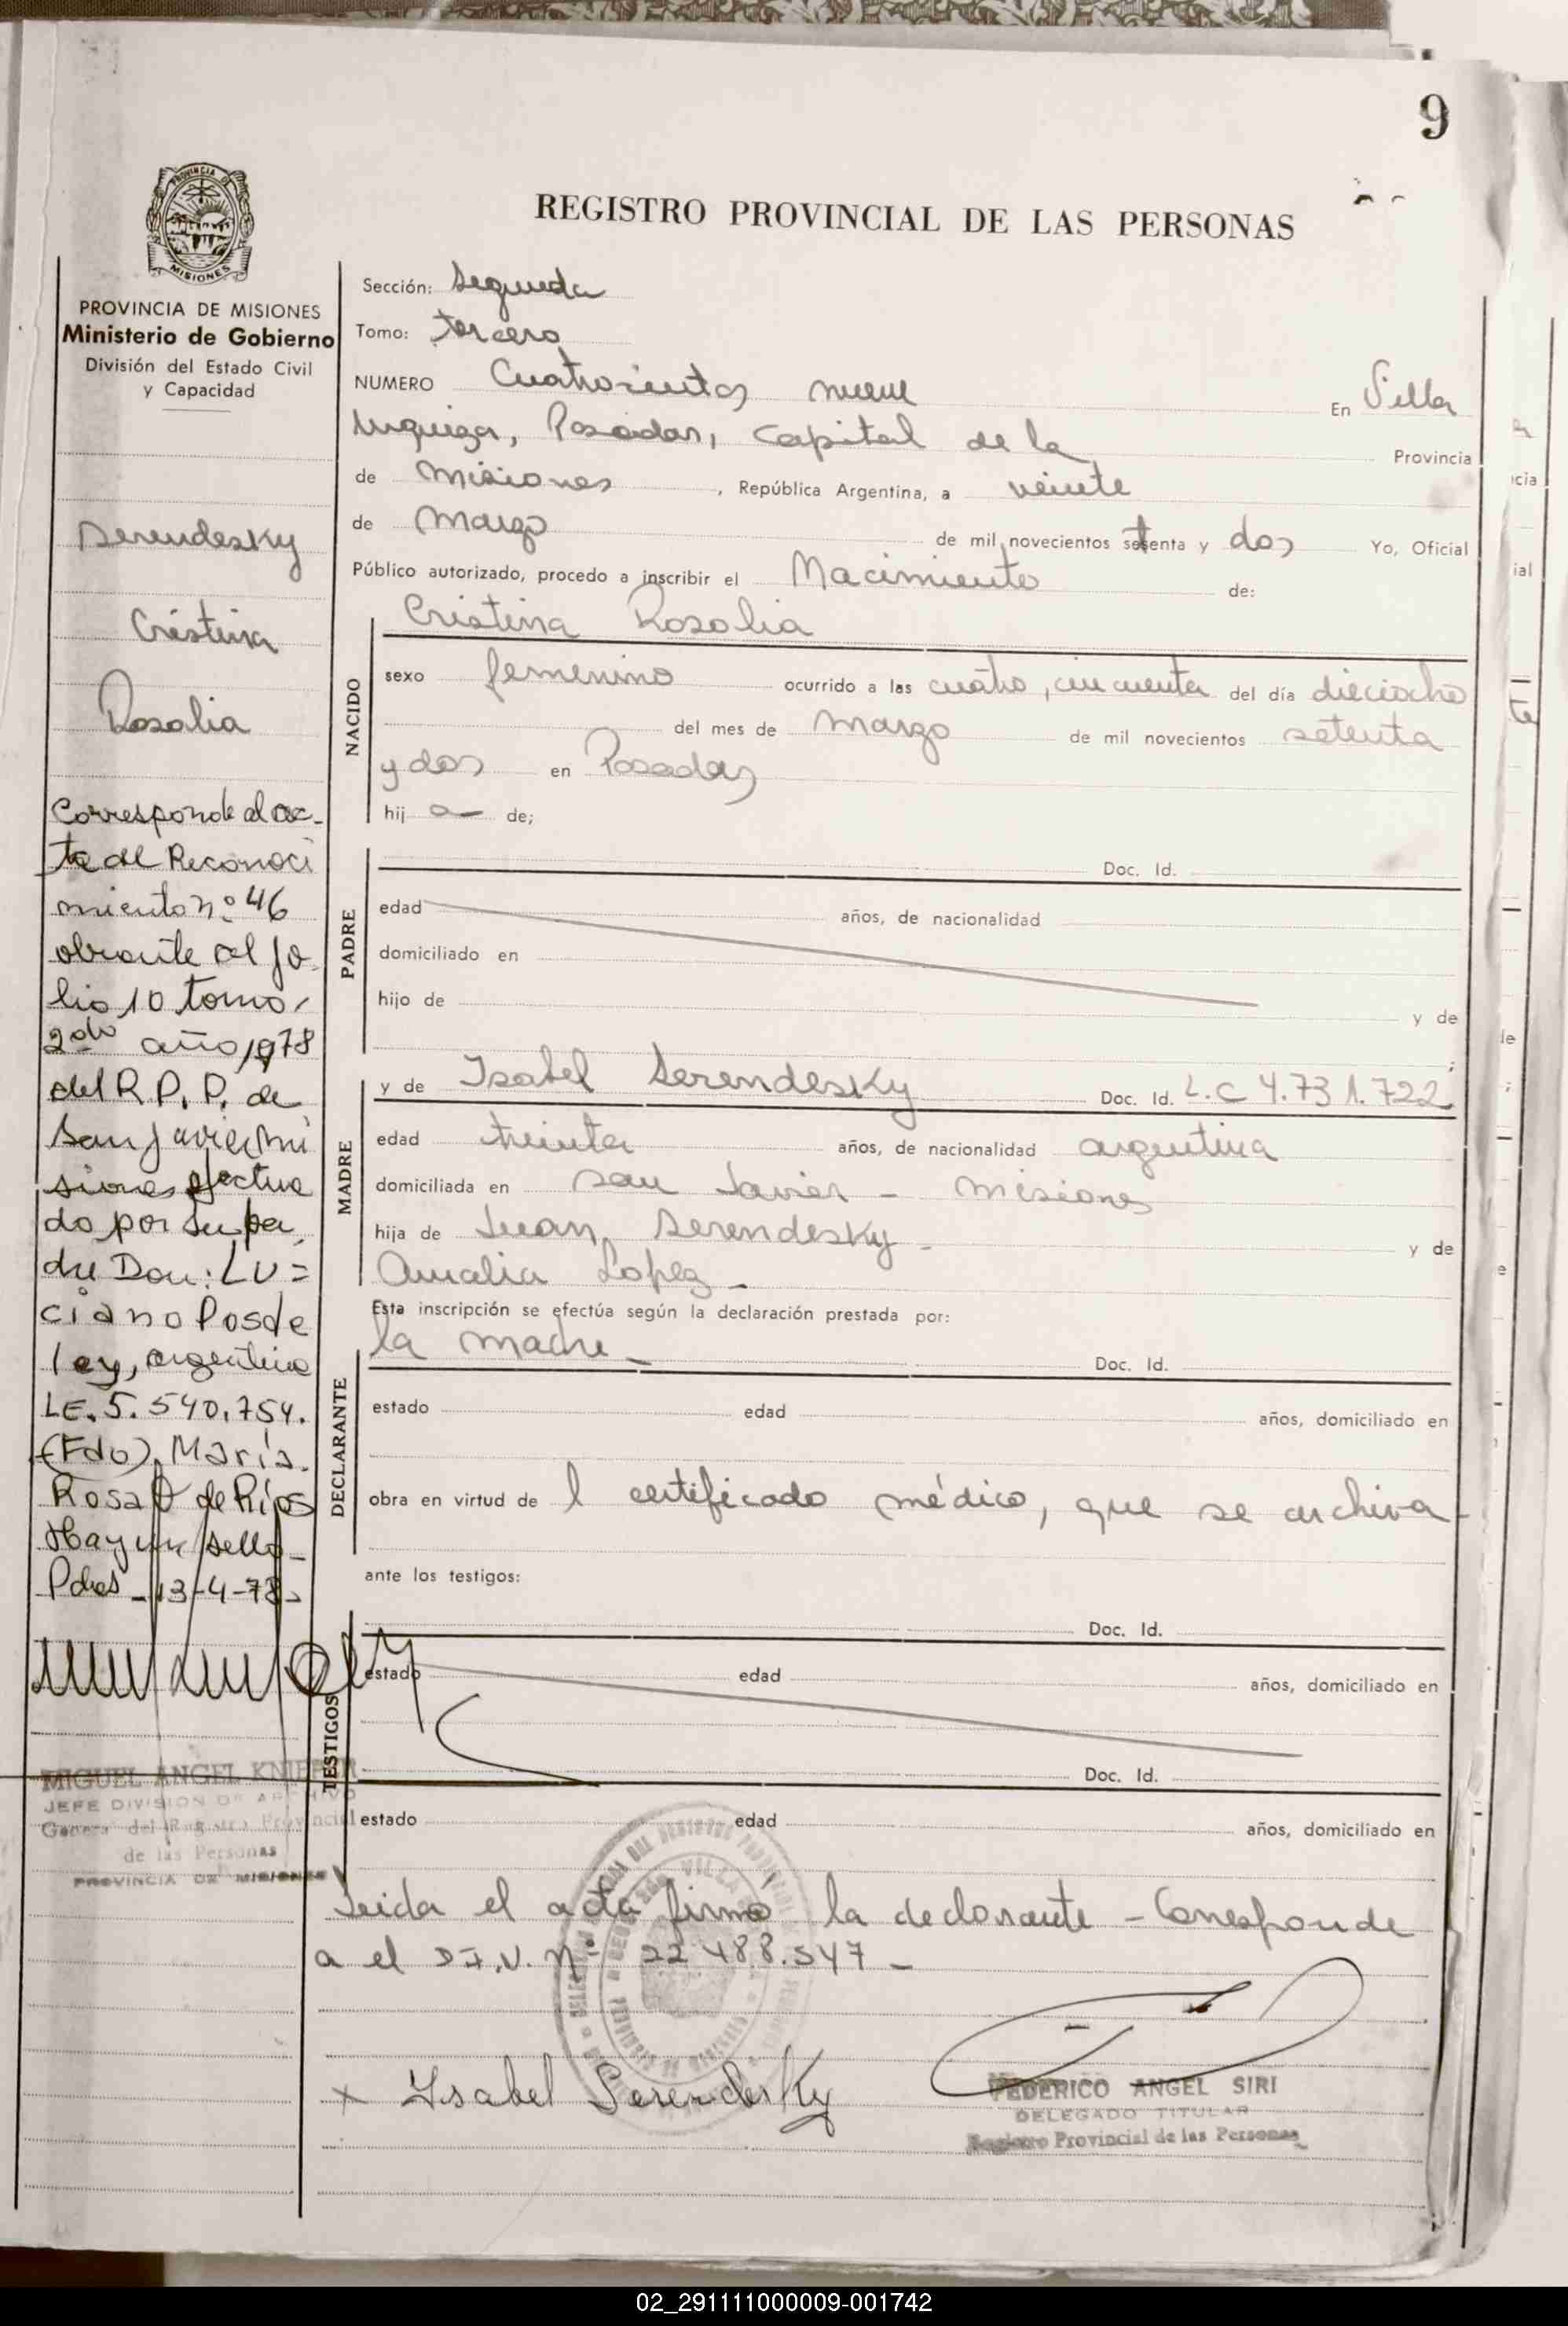 9
PROVINCIA DE
MISIONES
PROVINCIA DE MISIONES
Ministerio de Gobierno
División del Estado Civil
y Capacidad
Serendesky
Cristina
Rosalia
Corresponde al ac-
ta del Reconoci
miento nº 46
obrante al fo-
lio 10 tomo
2do año 1978
del R.P.P. de
San Javier Mi
siones efectua
do por su pa
dre Don: LU=
ciano Posde
ley, argentino
LE. 5.540.754.
(Fdo) María
Rosa de Ríos
Hay un sello
Pdas - 13-4-78-
MIGUEL ANGEL
JEFE DIVISION DE ARCHIVO
General del Registro Provincial
de las Personas
PROVINCIA DE MISIONES
REGISTRO PROVINCIAL DE LAS PERSONAS
Sección: Segunda
Tomo: tercero
NUMERO Cuatrocientos nueve En Villa
Urquiza, Posadas, Capital de la Provincia
de Misiones, República Argentina, a veinte
de Marzo de mil novecientos setenta y dos Yo, Oficial
Público autorizado, procedo a inscribir el Nacimiento de:
Cristina Rosalia
NACIDO
sexo femenino ocurrido a las cuatro, cincuenta del día dieciocho
del mes de Marzo de mil novecientos setenta
y dos en Posadas
hij a de;
PADRE
Doc. Id.
edad años, de nacionalidad
domiciliado en
hijo de y de
;
MADRE
y de Isabel Serendesky Doc. Id. L.C 4.731.722
edad treinta años, de nacionalidad argentina
domiciliada en San Javier - Misiones
hija de Juan Serendesky - y de
Amalia Lopez -
Esta inscripción se efectúa según la declaración prestada por:
DECLARANTE
la madre - Doc. Id.
estado edad años, domiciliado en
obra en virtud de l certificado médico, que se archiva -
ante los testigos:
TESTIGOS
Doc. Id.
estado edad años, domiciliado en
Doc. Id.
estado edad años, domiciliado en
Leida el acta firma la declarante - Corresponde
a el D.I.N. Nº 22.488.547 -
x Isabel Serendesky
FEDERICO ANGEL SIRI
DELEGADO TITULAR
Registro Provincial de las Personas
02_291111000009-001742